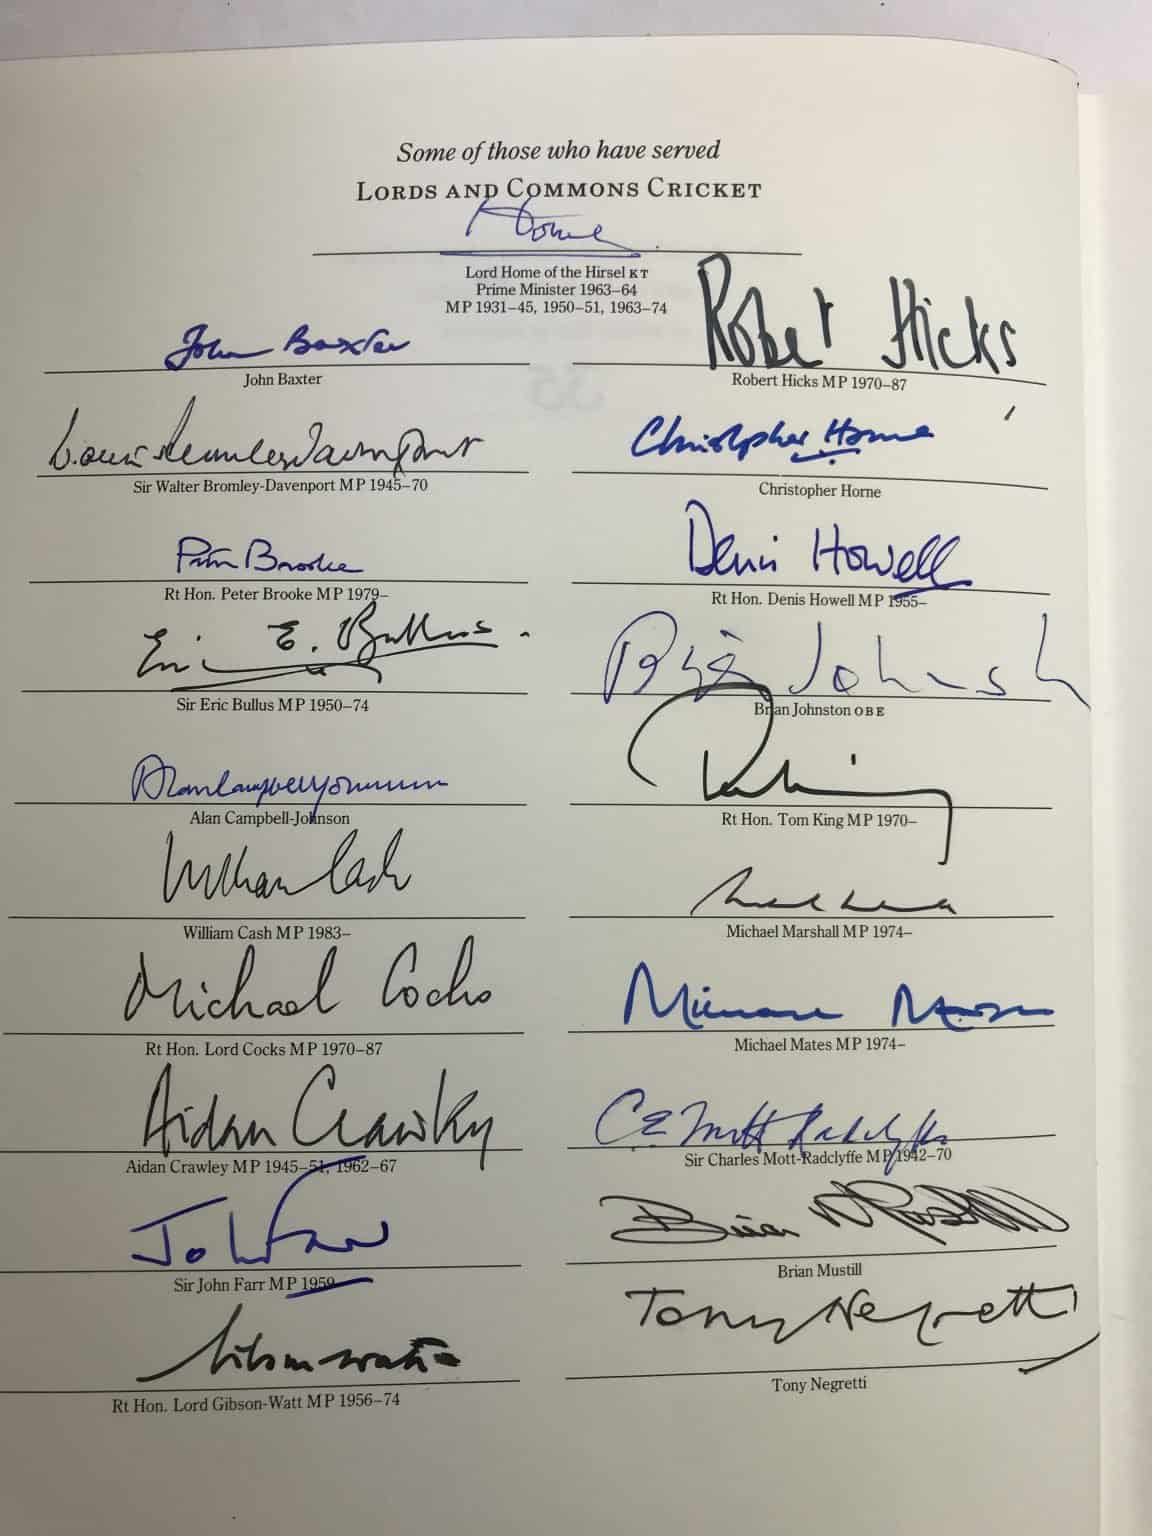 Some of those who have served
LORDS AND COMMONS CRICKET
Home
Lord Home of the Hirsel KT
Prime Minister 1963–64
MP 1931–45, 1950–51, 1963–74
John Baxter
John Baxter
Robert Hicks
Robert Hicks MP 1970–87
Sir Walter Bromley-Davenport MP 1945–70
Christopher Horne
Christopher Horne
Peter Brooke
Rt Hon. Peter Brooke MP 1979–
Denis Howell
Rt Hon. Denis Howell MP 1955–
Eric E. Bullus
Sir Eric Bullus MP 1950–74
Brian Johnston
Brian Johnston OBE
Alan Campbell-Johnson
Alan Campbell-Johnson
Rt Hon. Tom King MP 1970–
William Cash
William Cash MP 1983–
Michael Marshall MP 1974–
Michael Cocks
Rt Hon. Lord Cocks MP 1970–87
Michael Mates
Michael Mates MP 1974–
Aidan Crawley
Aidan Crawley MP 1945–51, 1962–67
C E Mott Radclyffe
Sir Charles Mott-Radclyffe MP 1942–70
John Farr
Sir John Farr MP 1959–
Brian Mustill
Gibson-Watt
Rt Hon. Lord Gibson-Watt MP 1956–74
Tony Negretti
Tony Negretti